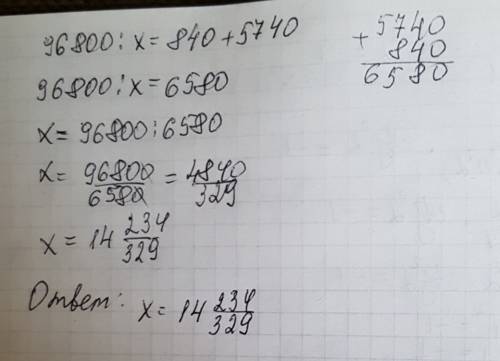 96800 : x = 840 + 5740
96800 : x = 6580
x = 96800 : 6580
x = 96800/6580 = 4840/329
x = 14 234/329
Ответ: x = 14 234/329
5740
+ 840
6580